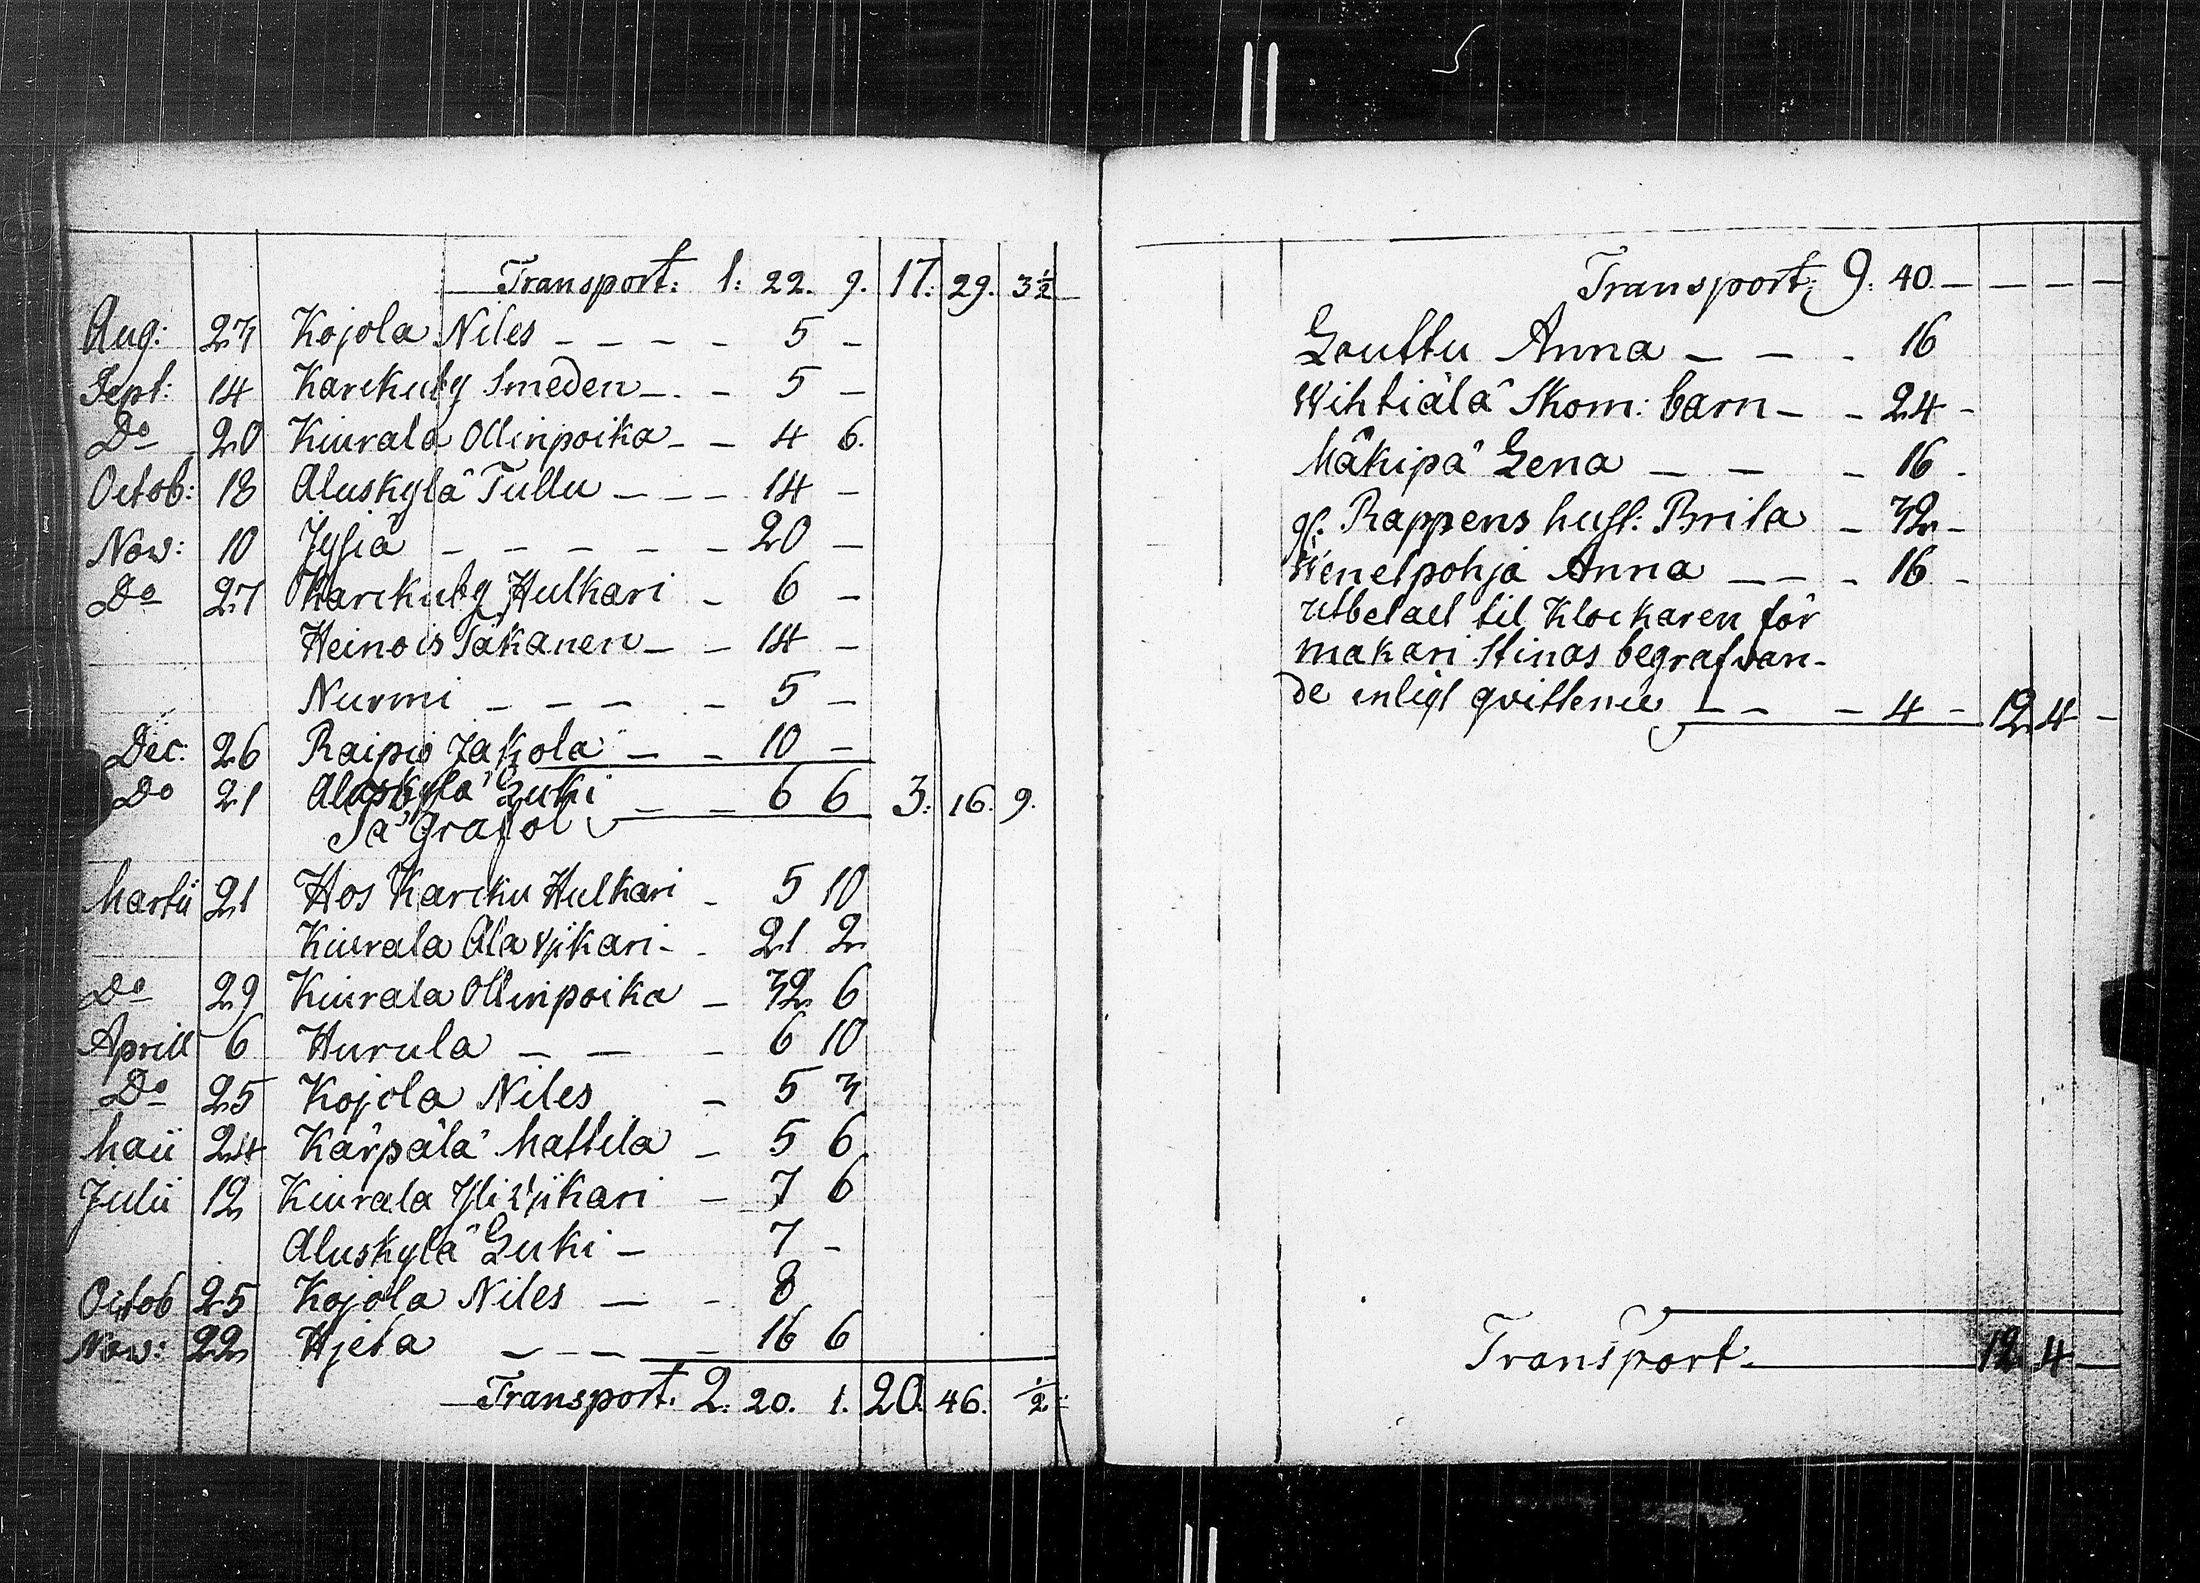 Transport: 1: 22. 9. 17. 29. 3½
Aug: 23 Kojola Niles - - - - 5 -
Sept: 14 Karckuby Smeden - - 5 -
Do 20 Kiurala Ollinpoika - - 4 6.
Octob: 18 Aluskylä Tullu - - - 14 -
Nov: 10 Jysiä - - - - - 20 -
Do 27 Karckuby Hulkari - 6 -
Heinois Täkänen - - 14 -
Nurmi - - - - 5 -
Dec: 26 Raipio Jakola - - 10 -
Do 21 Aluskylä Luki - - 6 6 3: 16. 9.
På Grafol
Martii 21 Hos Karcku Hulkari - 5 10
Kiurala Ala Vjikari - - 21 2
Do 29 Kiurala Ollinpoika - 32 6
Aprill 6 Hurula - - - 6 10
Do 25 Kojola Niles - 5 3
Maii 24 Kärpälä Mattila - 5 6
Julii 12 Kiurala Yli Vjikari - 7 6
Aluskylä Luki - 7 -
Octob 25 Kojola Niles - - 8
Nov: 22 Hjeta - - - - 16 6
Transport. 2: 20. 1. 20. 46. ½
Transport: 9. 40 - - - -
Louttu Anna - - - 16
Wihtiälä Skom: barn - - 24 -
Mäkipä Lena - - - 16 -
gl. Rappens hust: Brita - 32 -
Wenelpohja Anna - - - 16 -
utbetalt til Klockaren för
makari Stinas begrafvan-
de enligt qvittence - - - 4 - 12 4 -
Transport 12 4 -